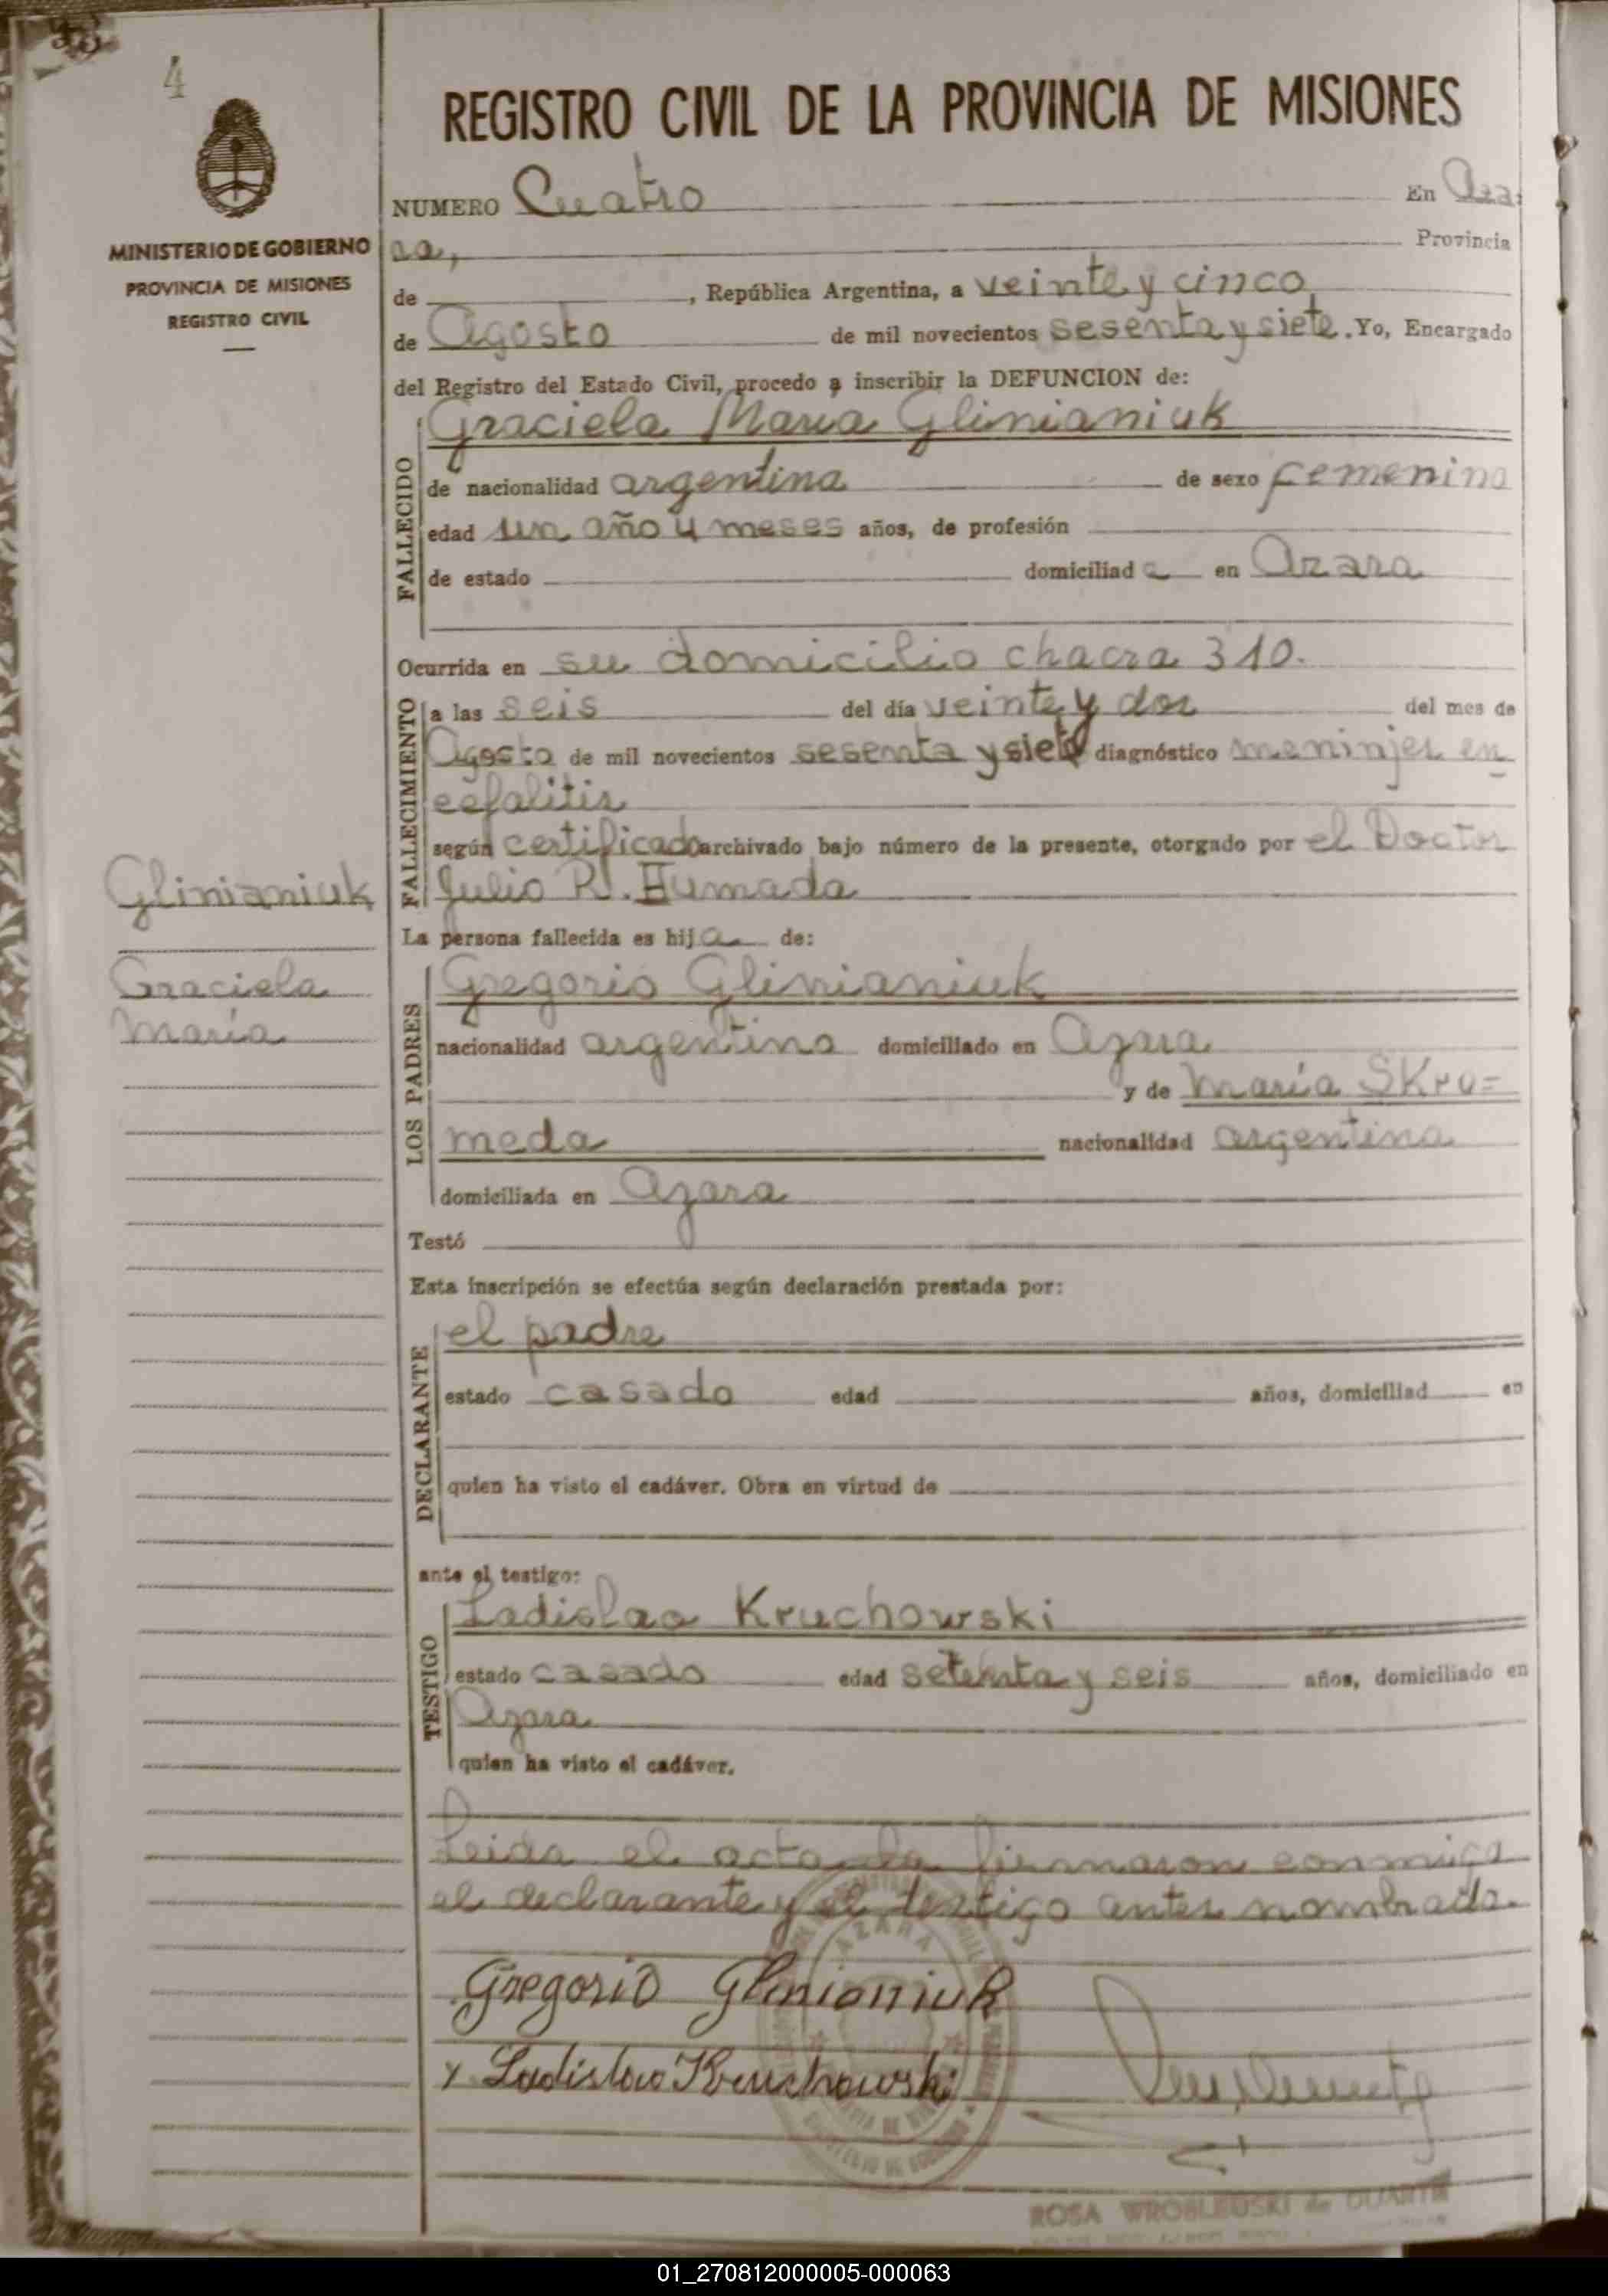 4
REGISTRO CIVIL DE LA PROVINCIA DE MISIONES
MINISTERIO DE GOBIERNO
PROVINCIA DE MISIONES
REGISTRO CIVIL
NUMERO Cuatro En Aza=
ra, Provincia
de , República Argentina, a veinte y cinco
de Agosto de mil novecientos sesenta y siete. Yo, Encargado
del Registro del Estado Civil, procedo a inscribir la DEFUNCION de:
FALLECIDO
Graciela Maria Glinianiuk
de nacionalidad argentina de sexo femenino
edad un año 4 meses años, de profesión
de estado domiciliada en Azara
Ocurrida en su domicilio chacra 310.
FALLECIMIENTO
a las seis del día veinte y dos del mes de
Agosto de mil novecientos sesenta y siete diagnóstico meninjes en
cefalitis
según certificado archivado bajo número de la presente, otorgado por el Doctor
Julio R. Humada
Glinianiuk
Graciela
María
La persona fallecida es hija de:
LOS PADRES
Gregorio Glinianiuk
nacionalidad argentino domiciliado en Azara
y de María Skro=
meda nacionalidad argentina
domiciliada en Azara
Testó
Esta inscripción se efectúa según declaración prestada por:
DECLARANTE
el padre
estado casado edad años, domiciliad en
quien ha visto el cadáver. Obra en virtud de
ante el testigo:
TESTIGO
Ladislao Kruchowski
estado casado edad setenta y seis años, domiciliado en
Azara
quien ha visto el cadáver.
Leida el acta la firmaron conmigo
el declarante y el testigo antes nombrado.
AZARA
Gregorio Glinianiuk
x Ladislao Kruchowski
ROSA WROBLEUSKI de DUARTE
01_270812000005-000063